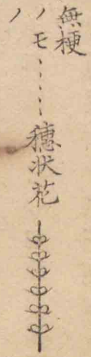 無梗
ノモノ……穗状花